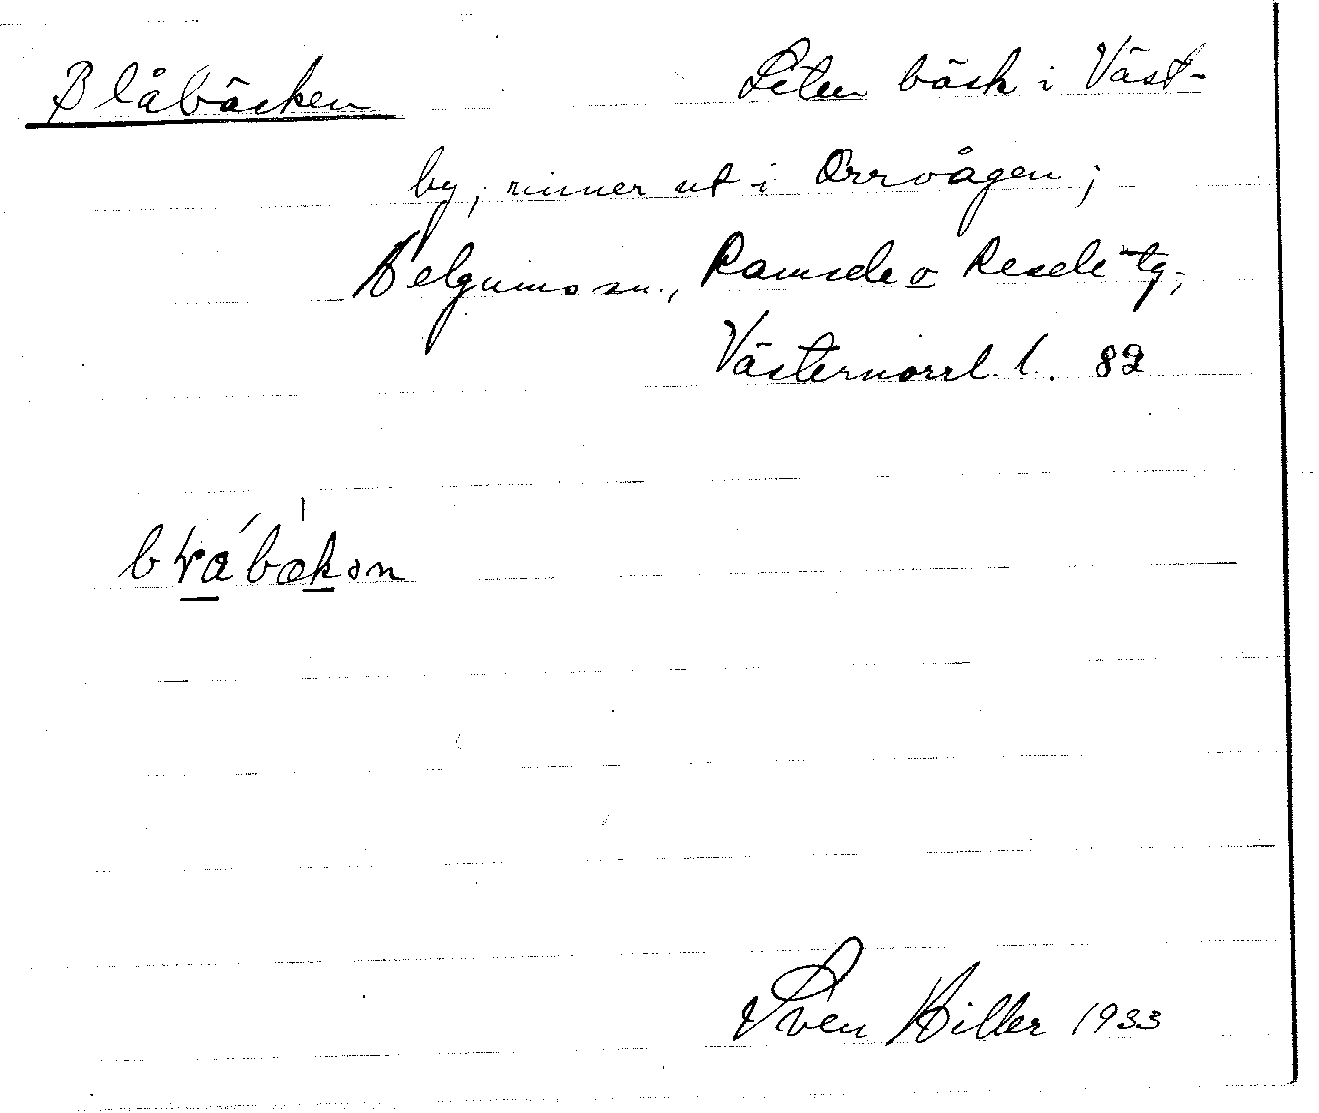 Blåbäcken Liten bäck i Väst-
by, rinner ut i Orrvågen;
Helgums sn., Ramsele o Resele tg,
Västernorrl. l. 82
Sven Hiller 1933